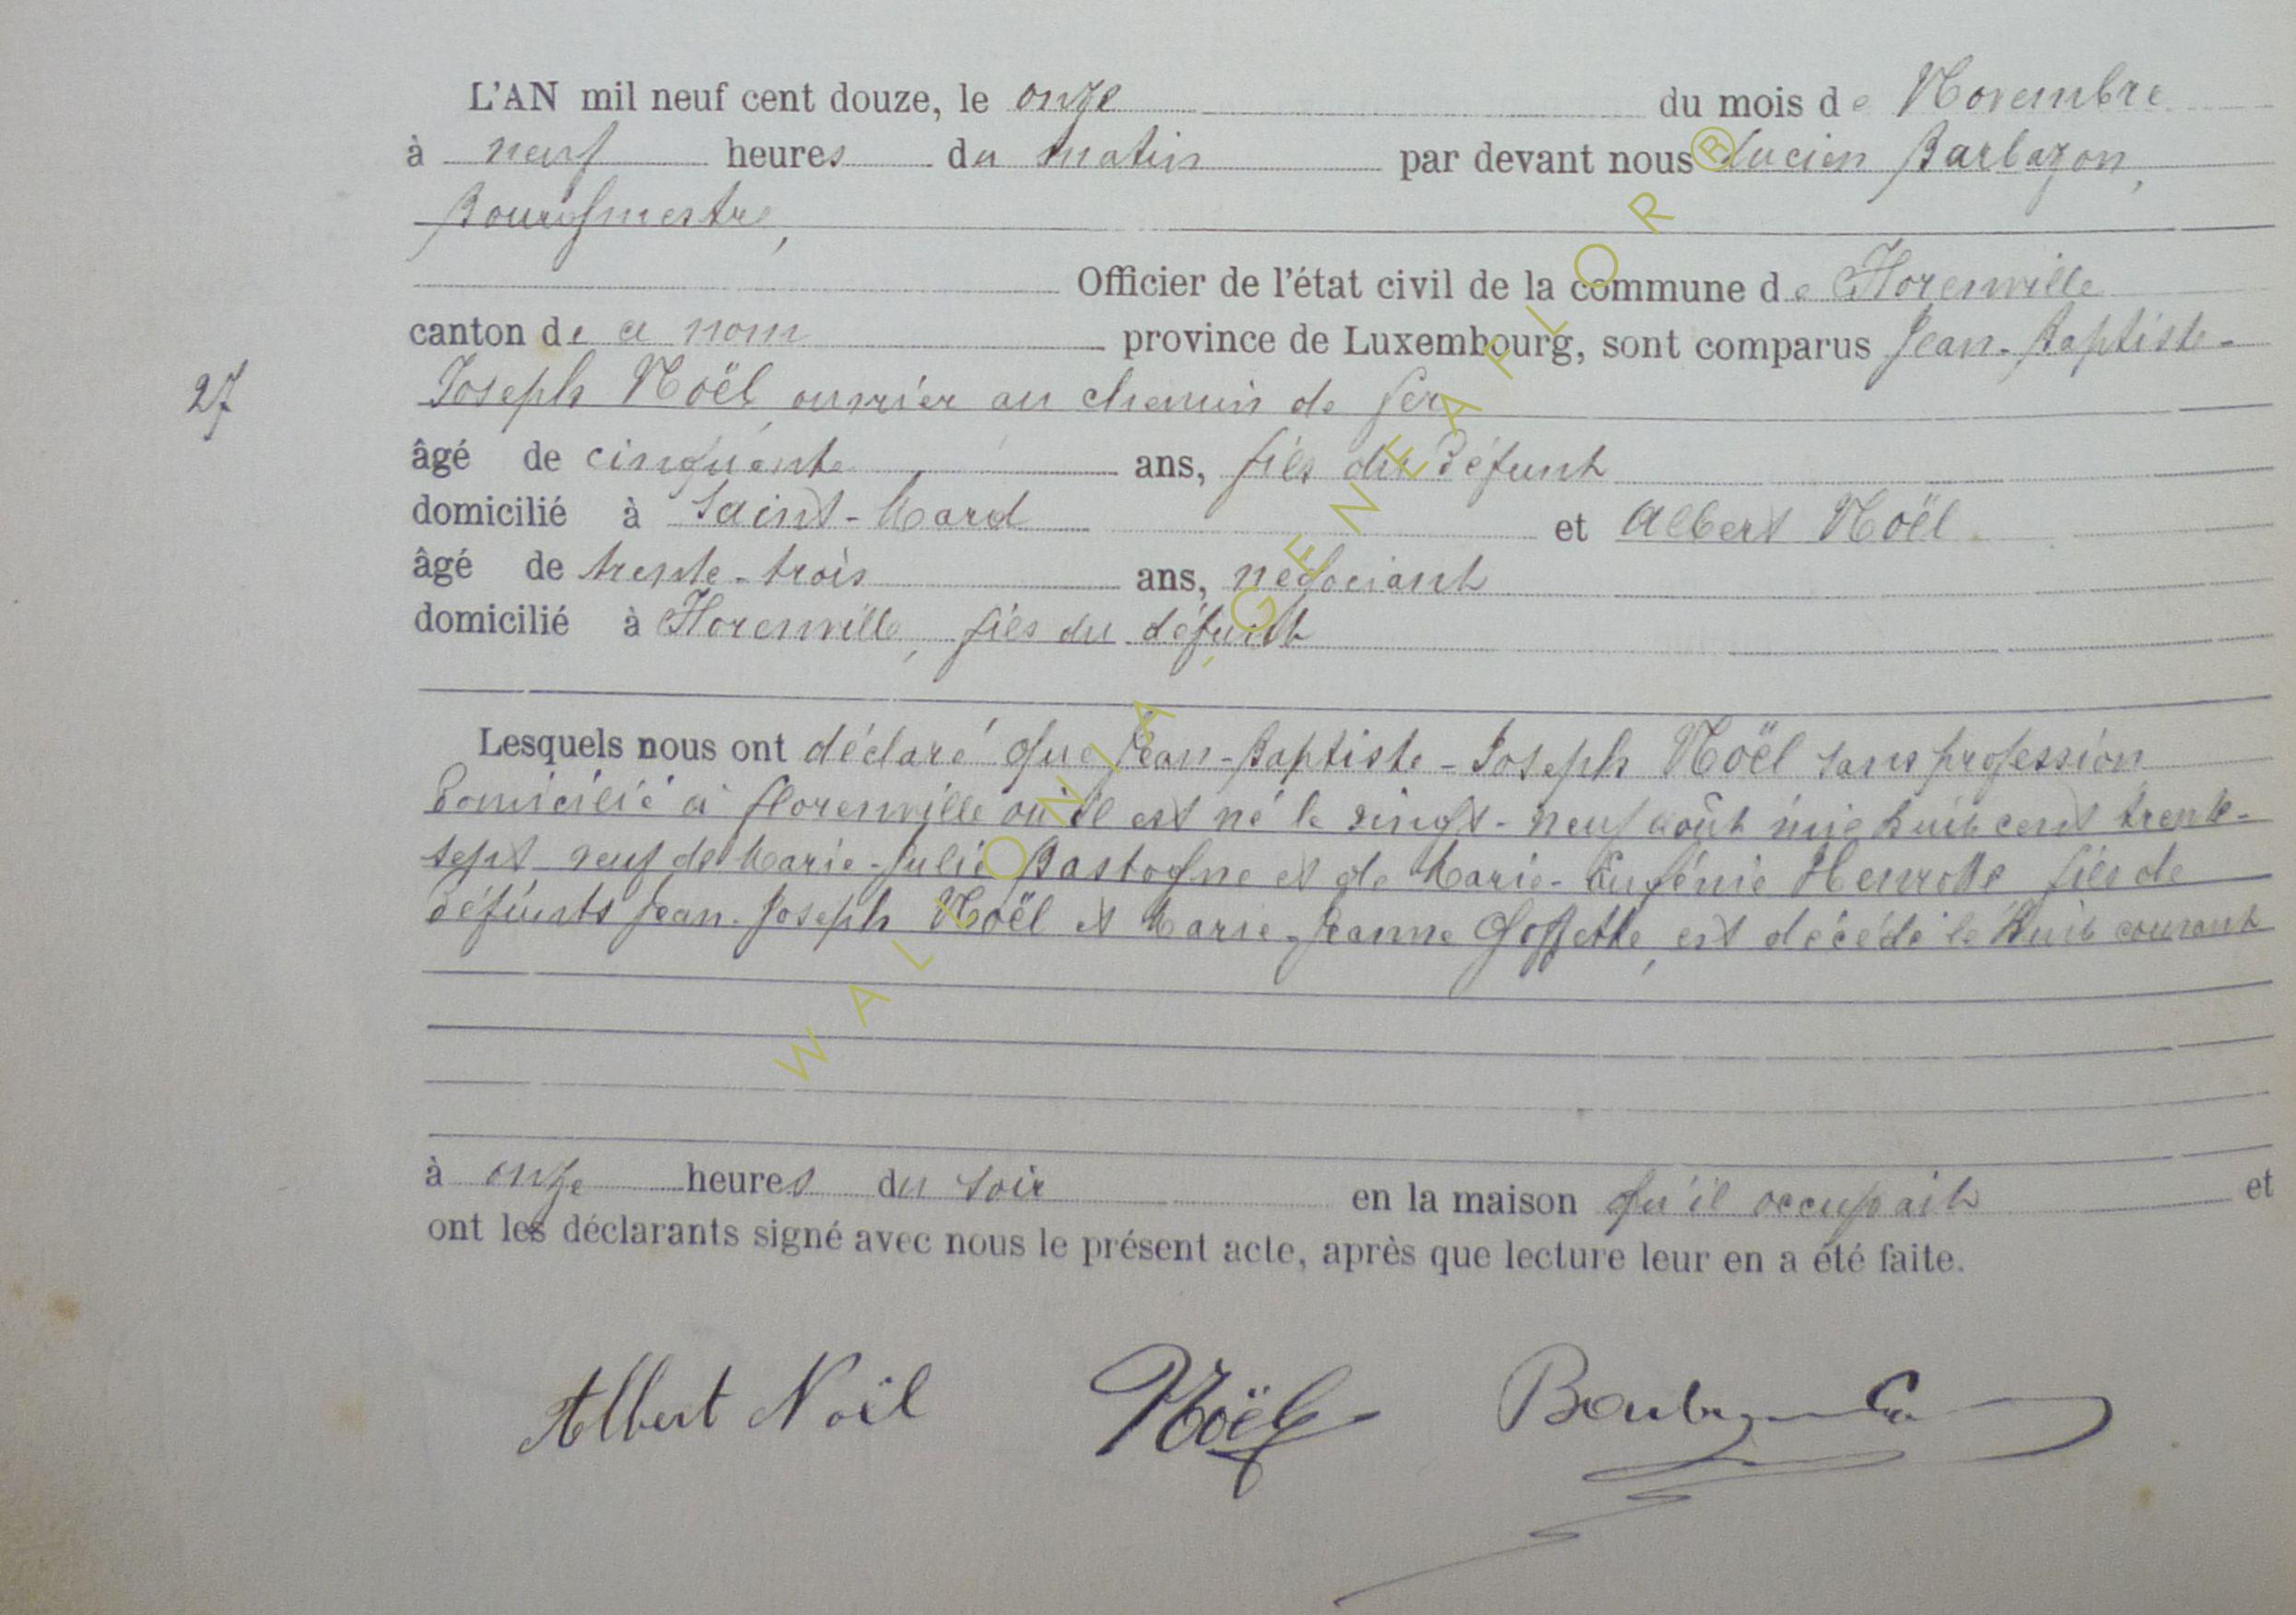 L'AN mil neuf cent douze, le onze du mois de Novembre
à neuf heures du matin par devant nous Lucien Barbazon,
Bourgmestre,
Officier de l'état civil de la commune de Florenville
canton de ce nom province de Luxembourg, sont comparus Jean-Baptiste-
27
Joseph Noël, ouvrier au chemin de fer
âgé de cinquante ans, fils du défunt
domicilié à Saint-Mard et Albert Noël
âgé de trente-trois ans, négociant
domicilié à Florenville, fils du défunt
Lesquels nous ont déclaré que Jean-Baptiste-Joseph Noël sans profession
domicilié à Florenville où il est né le vingt-neuf août mil huit cent trente-
sept veuf de Marie-Julie Bastogne et de Marie-Eugénie Henrotte fils de
défunts Jean-Joseph Noël et Marie-Jeanne Goffette, est décédé le huit courant
à onze heures du soir en la maison qu'il occupait et
ont les déclarants signé avec nous le présent acte, après que lecture leur en a été faite.
Albert Noël Noël
WALLONIA, GENEAFLOR®